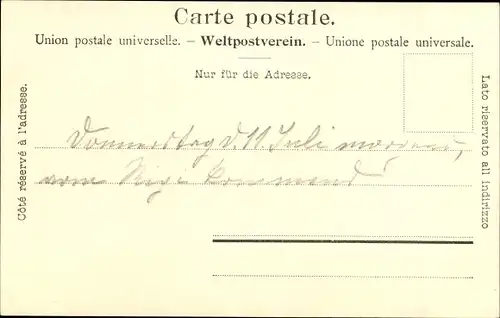 Carte postale.
Union postale universelle. – Weltpostverein. – Unione postale universale.
Nur für die Adresse.
Côté réservé à l'adresse.
Lato riservato all indirizzo
Donnerstag d. 11. Juli morgens,
vom Rigi kommend!